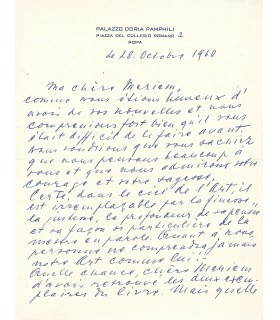 PALAZZO DORIA PAMPHILI
PIAZZA DEL COLLEGIO ROMANO 2
ROMA
le 28. Octobre 1960
Ma chère Meriem,
comme nous étions heureux d'
avoir de vos nouvelles et nous
comprenions fort bien qu'il vous
était difficile de le faire avant.
Nous voudrions que vous sachiez
que nous pensons beaucoup à
vous et que nous admirons votre
courage et votre sagesse.
Certe, dans le ciel de l'Art, il
est irremplaçable par la finesse,
la justesse, la profondeur de sa pensée
et sa façon si particulière de la
mettre en parole. Quant à nous,
personne ne comprendra jamais
notre Art comme lui...
Quelle chance, chère Meriem
d'avoir retrouvé les deux exem-
plaires du livre. Mais quelle